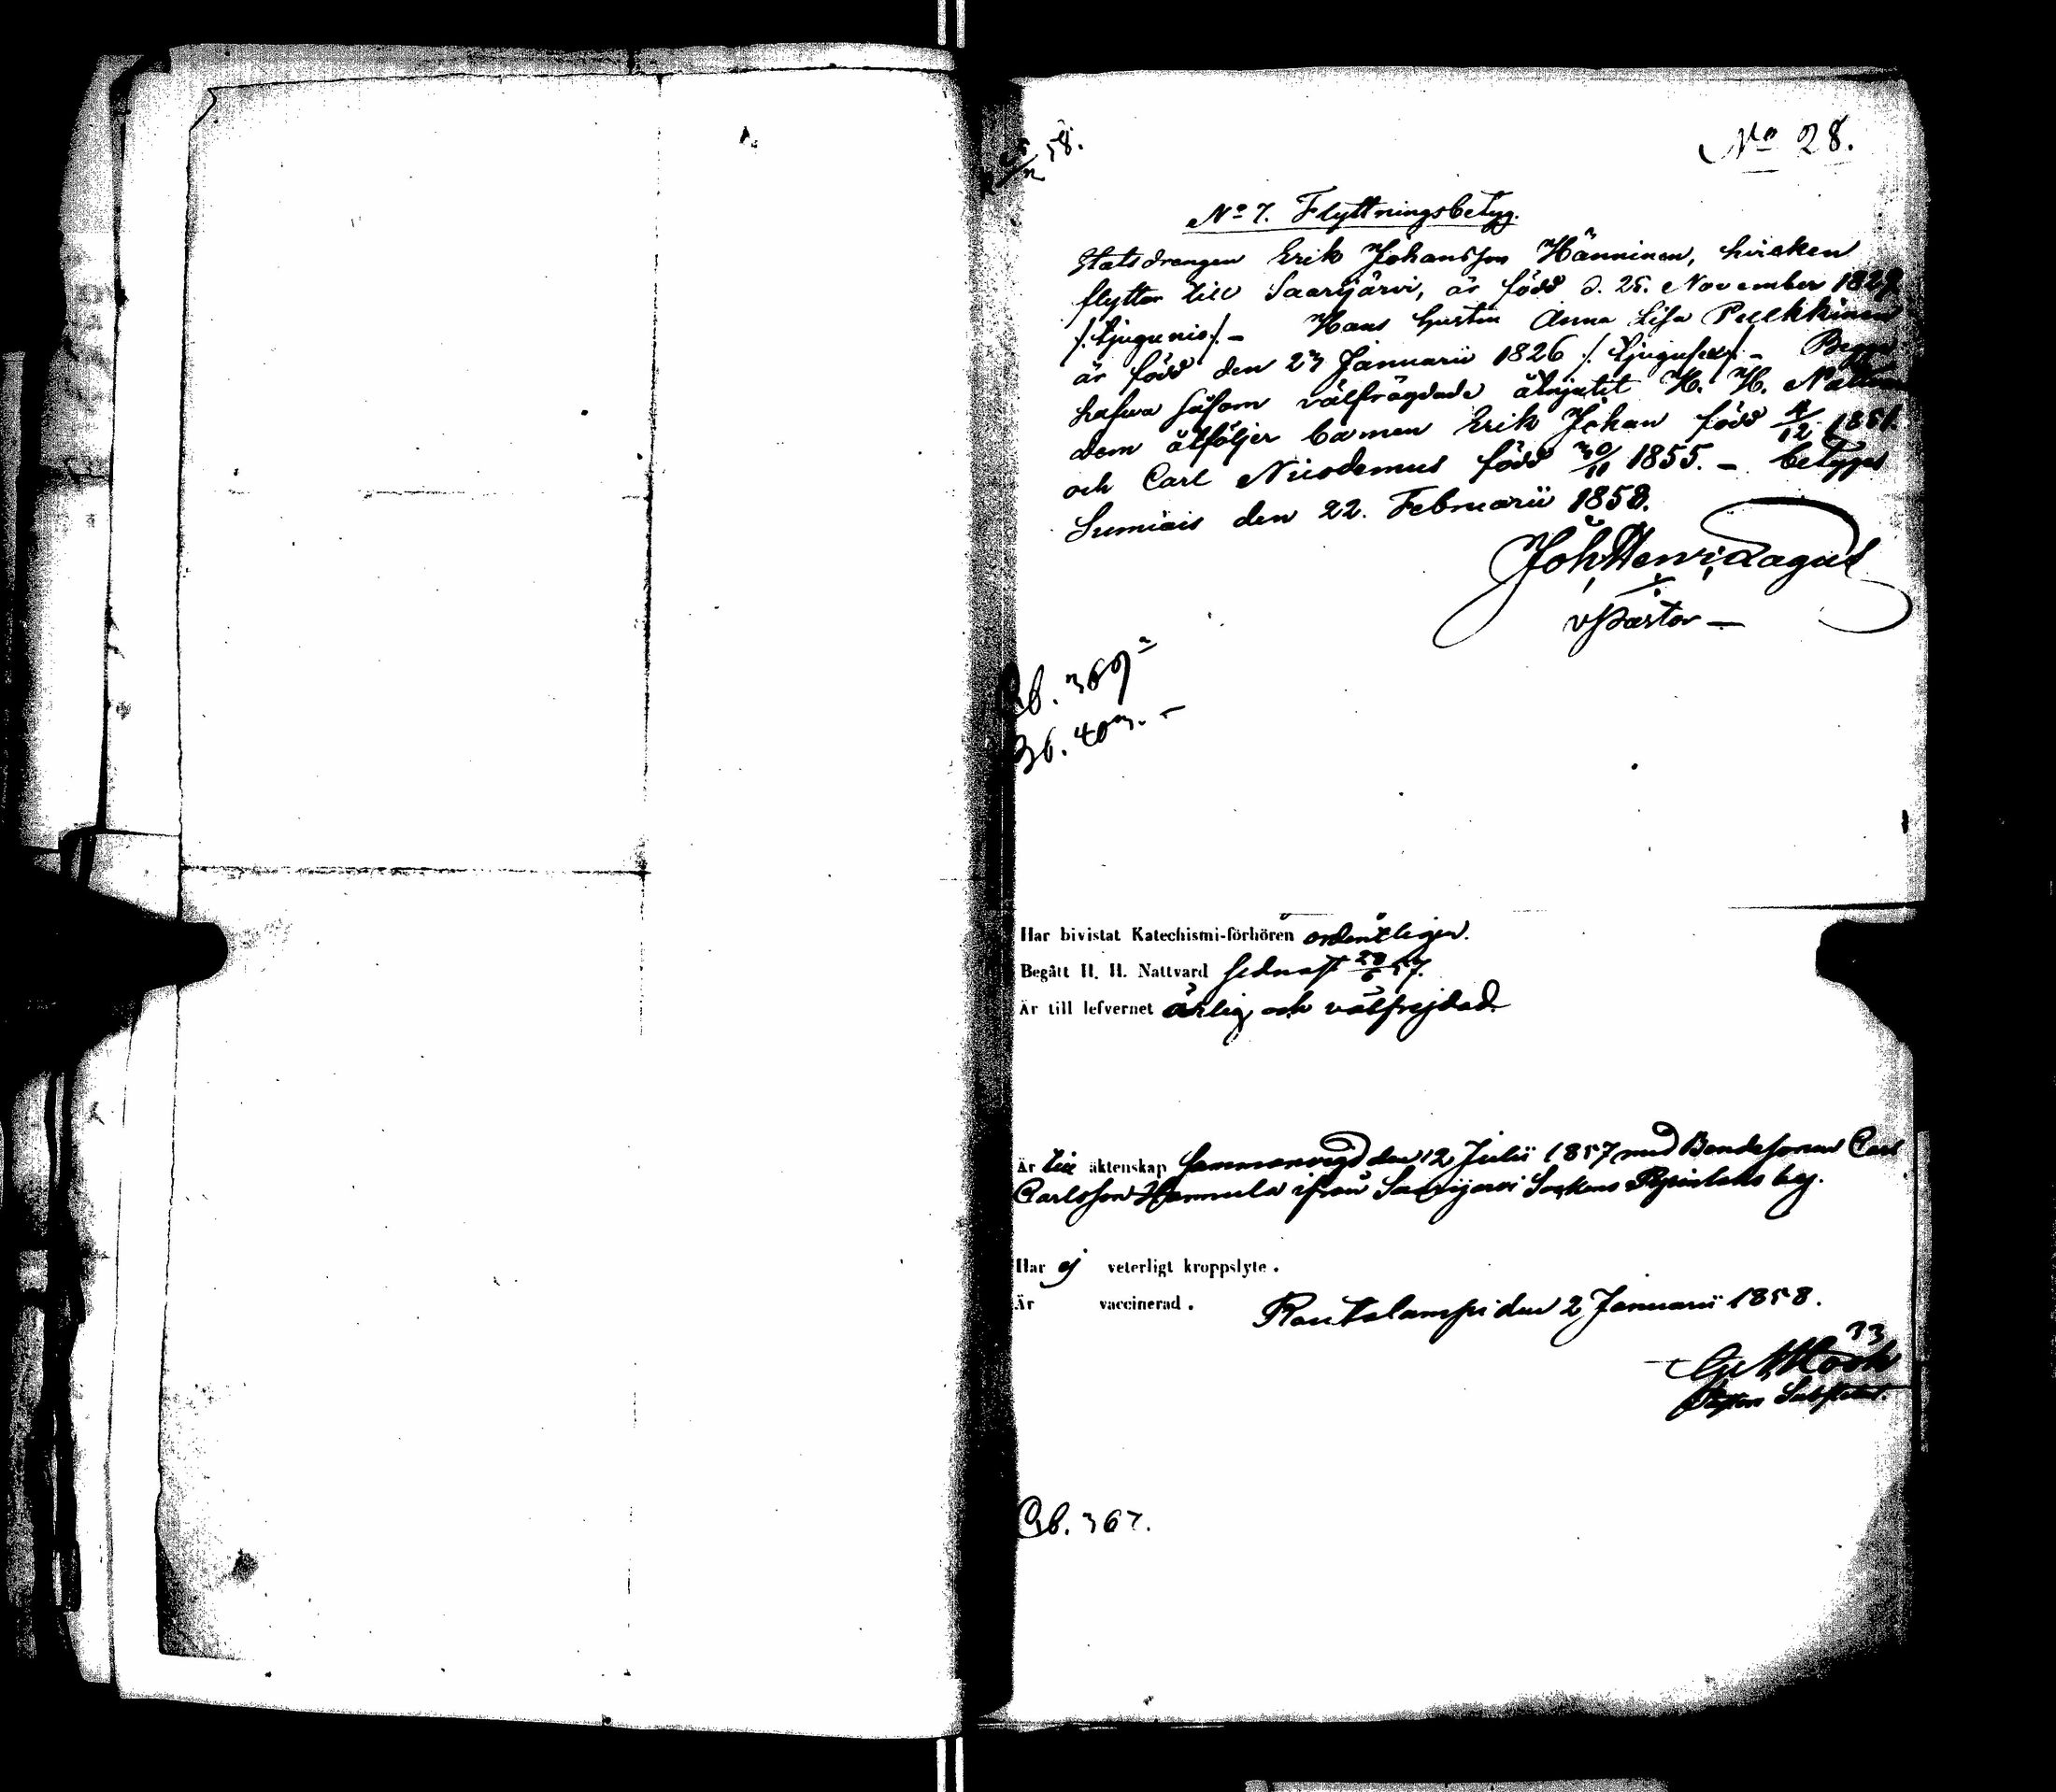 No 28.
58.
No 7. Flyttningsbetyg.
Statsdrengen Erik Johansson Hänninen, hvilken
flyttar till Saarijärvi, är född d. 25. November 1829
/: tjugunio :/ - Hans hustru Anna Lisa Puchkinen
är född den 23 Januarii 1826 /: tjugusex :/ - Begge
hafwa såsom välfrägdade åtnjutit H. H. Nattv
dem åtföljer barnen Erik Johan född 4/12 1851.
och Carl Nicodemus född 30/11 1855. - betygas
Sumiais den 22. Februarii 1858.
Joh. Henr. Lagus
v Pastor -
Cb. 369
Bb. 403. -
Har bivistat Katechismi-förhören ordentligen.
Begått H. H. Nattvard sednast 28/6 57.
Är till lefvernet ärlig och välfrejdad.
Är till äktenskap sammanvigd den 12 Julii 1857 med Bondesonen Carl
Carlsson Hannula ifrån Saarijärvi Sockens by.
Har ej veterligt kroppslyte.
Är vaccinerad.
Rautalampi den 2 Januarii 1858.
33
Cb. 367.